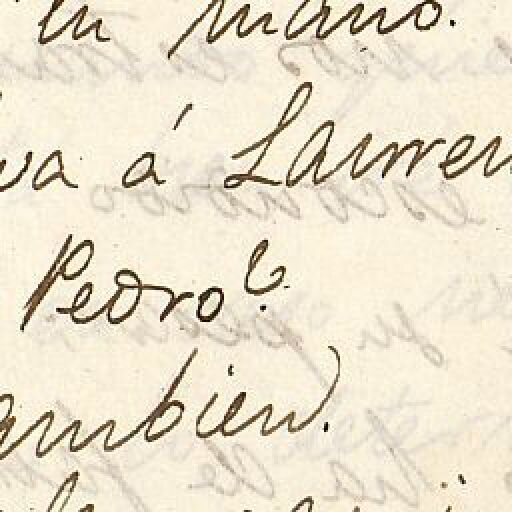 en mano.
va á Lauren
Pedro?
ambien.